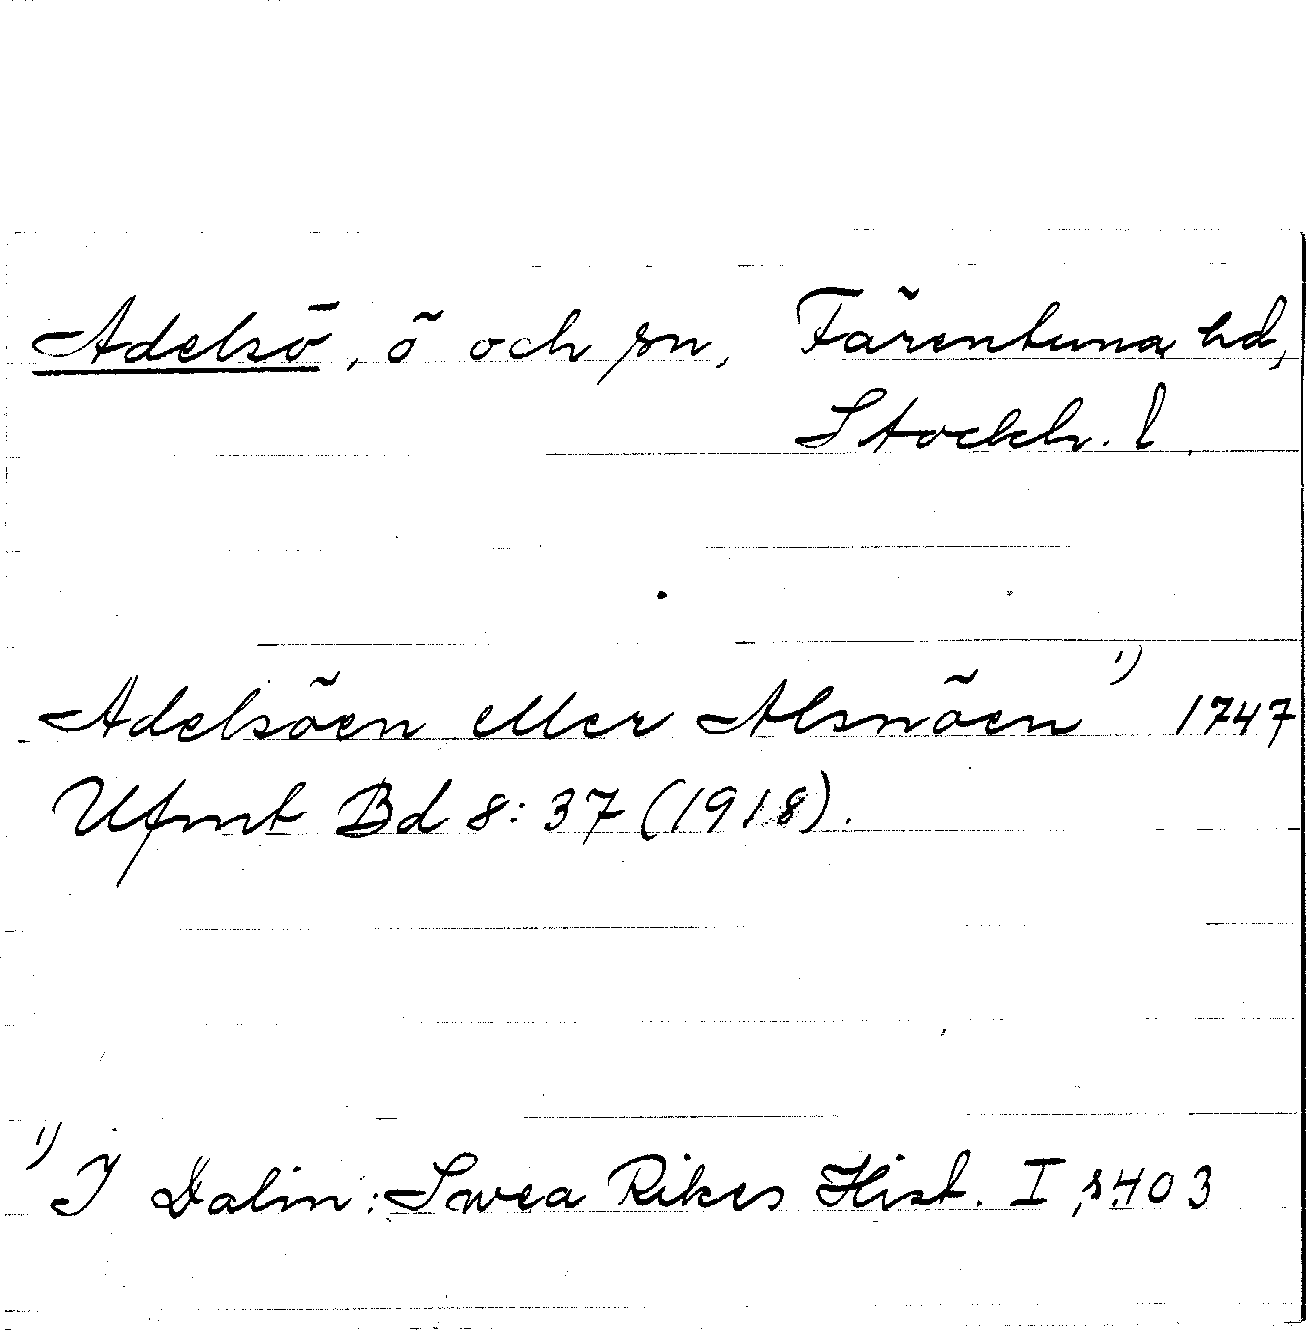 Adelsö, ö och sn, Färentuna hd,
Stockh. l.
Adelsöen eller Alsnöen ¹) 1747
Ufmt Bd 8:37 (1918).
¹) I Dalin: Swea Rikes Hist. I, s. 403